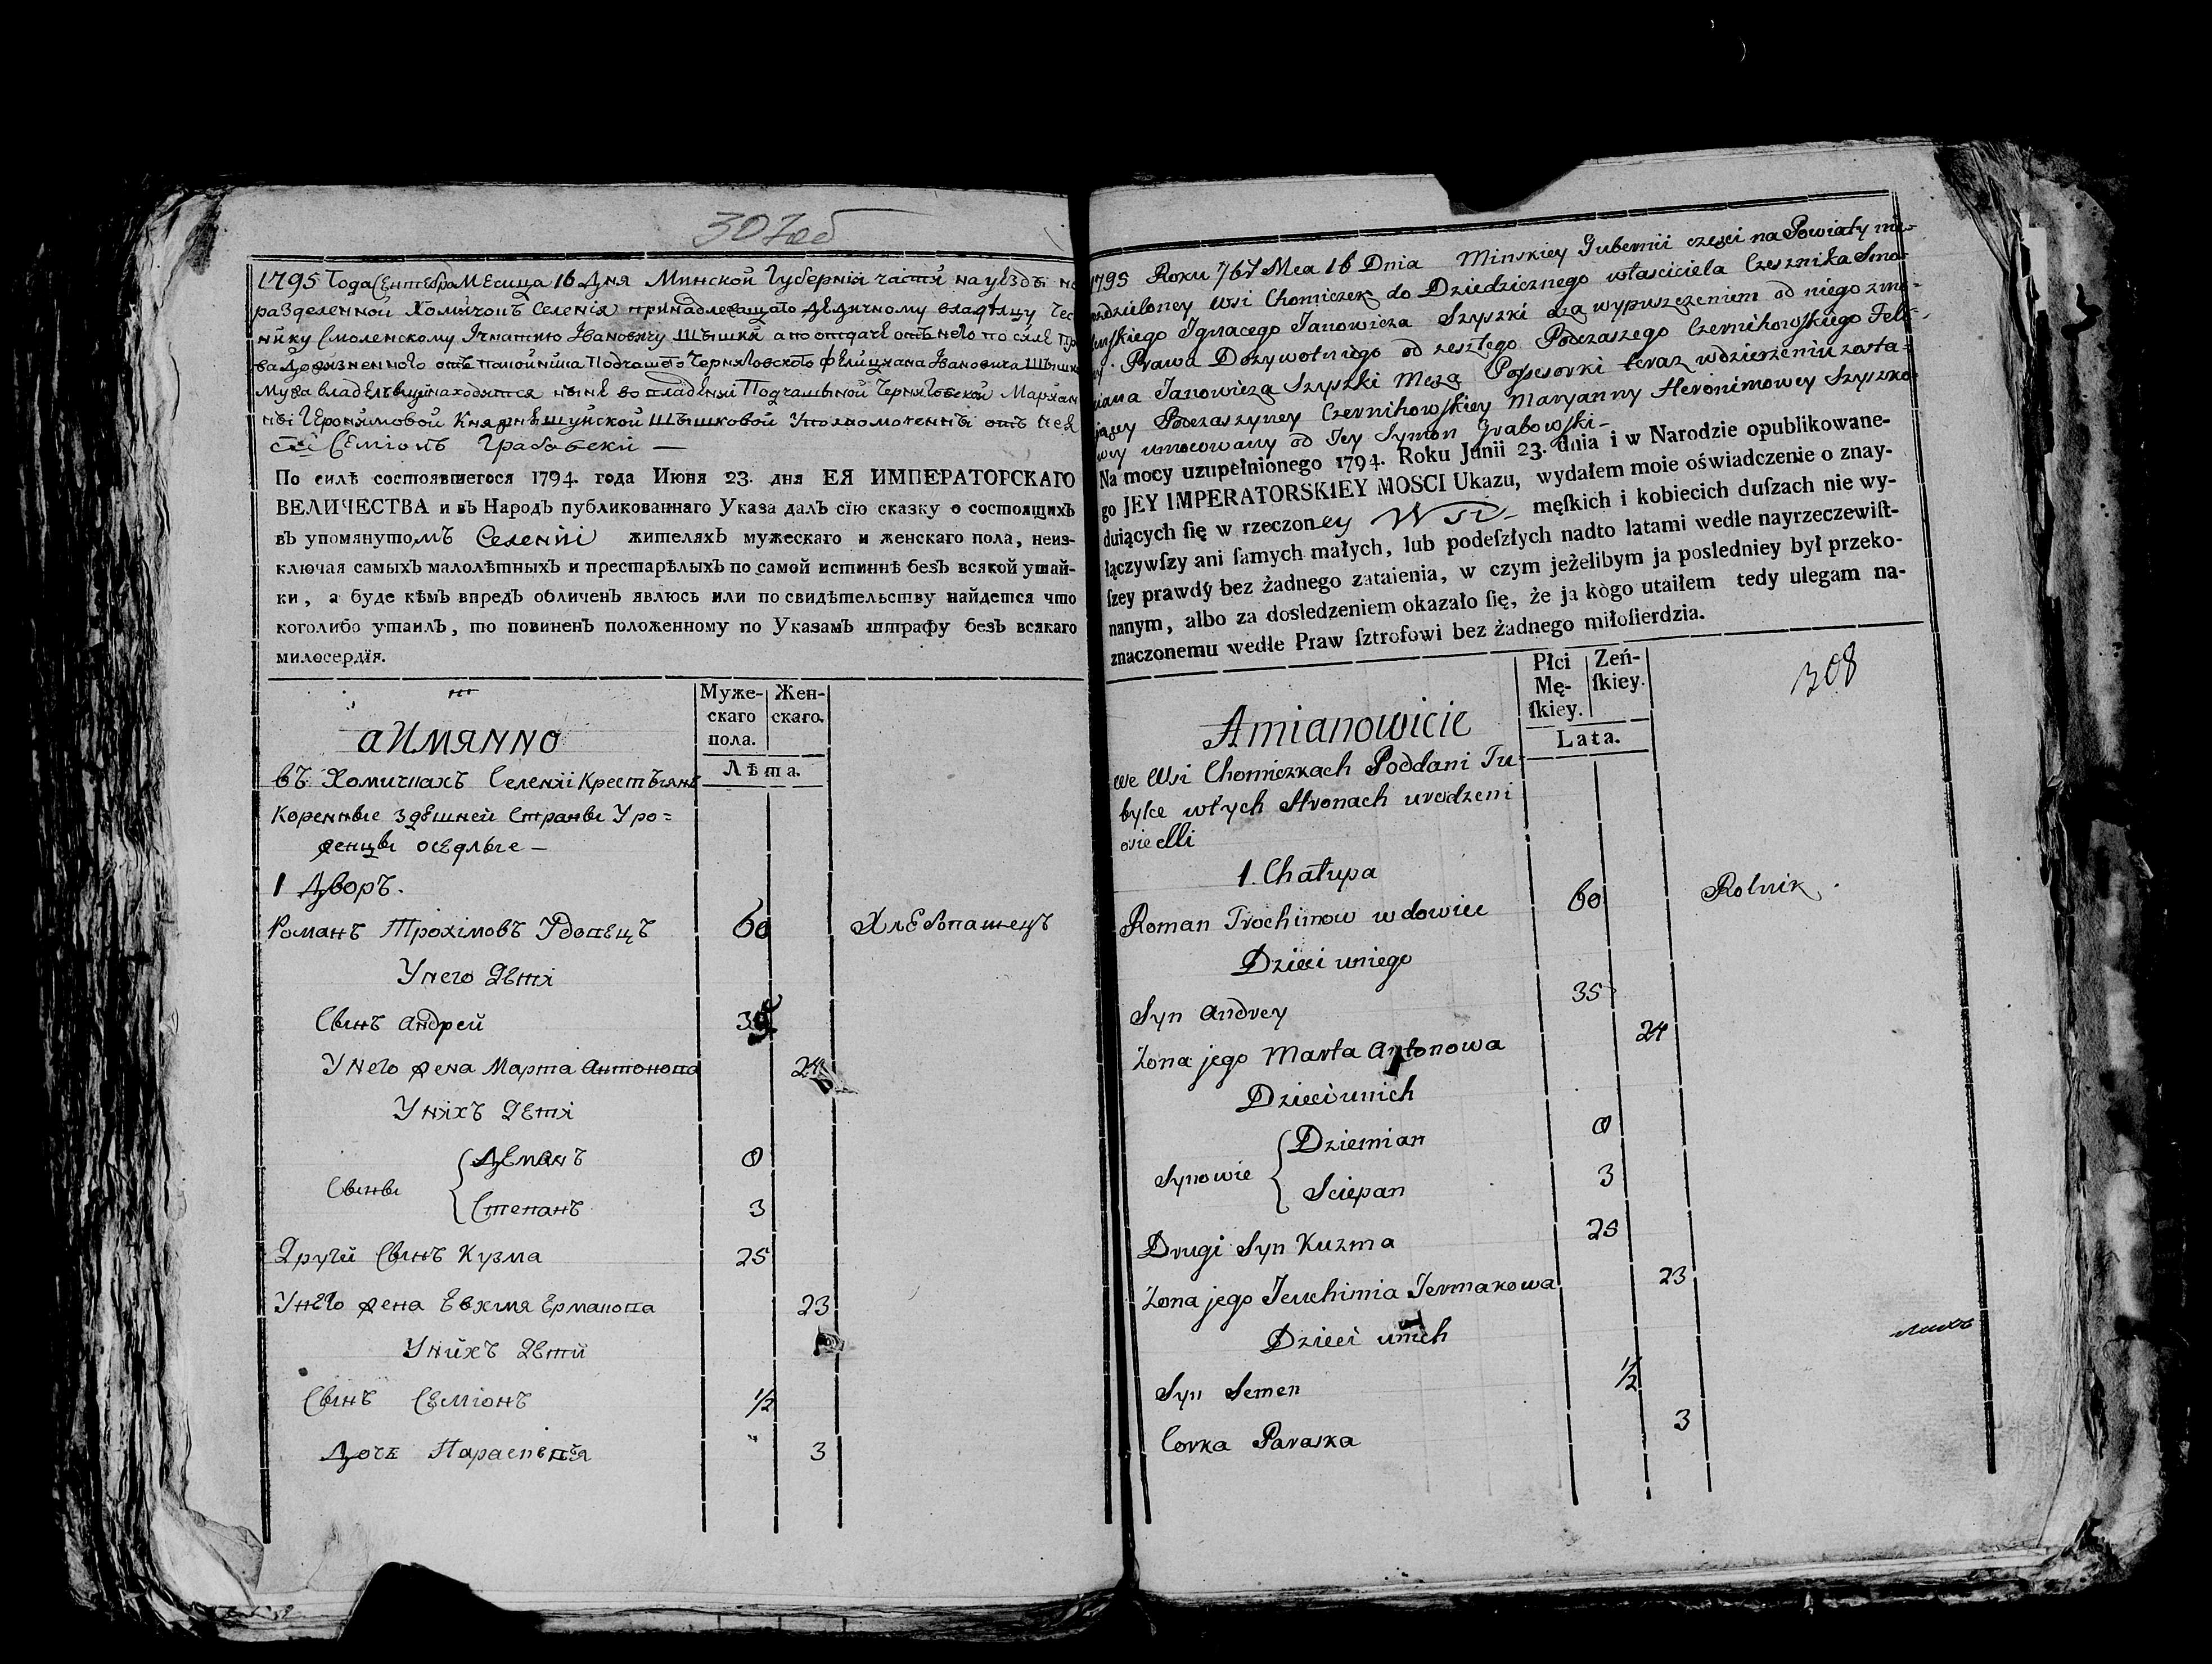 307об
1795 Года Сентебра Месица 16 Дня Минской Губерніи части на уезды не
разделенной Хомичокъ Селенія принадлежащаго Дедичному владельцу Чес
нику Смоленскому Ігнатию Ивановичу Шышки а по отдаче отъ него по силе пра
ва Дожизненного отъ покойника Подчашего Черниговского Фелициана Ивановича Шышки
Мужа владелъцы находится ныне во владении Подчашыной Черниговской Марианны
Героиимовой Шышковой Уполномоченный отъ нея
Семіонъ Грабовски —
По силѣ состоявшегося 1794. года Июня 23. дня ЕЯ ИМПЕРАТОРСКАГО
ВЕЛИЧЕСТВА и въ Народъ публикованнаго Указа далъ сїю сказку о состоящихъ
въ упомянутомъ Селеніи жителяхъ мужескаго и женскаго пола, неиз-
ключая самыхъ малолѣтныхъ и престарѣлыхъ по самой истиннѣ безъ всякой утай-
ки, а буде кѣмъ впредъ обличенъ явлюсь или по свидѣтельству найдется что
коголибо утаилъ, то повиненъ положенному по Указамъ штрафу безъ всякаго
милосердїя.
аИмянно
Муже- Жен-
скаго скаго.
пола.
Лѣта.
въ Хомичкахъ Селеніи Крестъяне
Коренные здешней Страны Уро=
женцы оседлые —
1 Дворъ.
Романъ Трохімовъ Удовецъ 60 Хлебопашецъ
У него Дети
Сынъ Андрей 35
У него жена Марта Антонова 24
У нихъ Дети
Сыны { Деманъ 0
Степанъ 3
Други Сынъ Кузма 25
У него жена Евхимя Ермакова 23
У нихъ Дети
Сынъ Семіонъ 1/2
Дочь Парасковія 3
1795 Roku 7br Mca 16 Dnia Minskiey Gubernii czesci na Powiaty nie=
rozdzieloney Wsi Chomiczek do Dziedzicznego własciciela Czesznika Smo=
lenskiego Ignacego Janowicza Szyszki a za wypuszczeniem od niego
Prawa Dozywotniego od zeszłego Podczaszego Czernihowskiego Feli=
ciana Janowicza Szyszki Męza Possesorki teraz w dzierzeniu zosta=
jącey Podczaszyney Czernihowskiey Maryanny Heronimowey Szyszko=
wey umocowany od Jey Symon Grabowski —
Na mocy uzupełnionego 1794. Roku Junii 23. dnia i w Narodzie opublikowane-
go JEY IMPERATORSKIEY MOSCI Ukazu, wydałem moie oświadczenie o znay-
duiących ſię w rzeczoney Wsi męſkich i kobiecich duſzach nie wy-
łączywſzy ani ſamych małych, lub podeſzłych nadto latami wedle nayrzeczewiſt-
ſzey prawdy bez żadnego zataienia, w czym jeżelibym ja posledniey był przeko-
nanym, albo za dosledzeniem okazało ſię, że ja kògo utaiłem tedy ulegam na-
znaczonemu wedle Praw ſztrofowi bez żadnego miłoſierdzia.
308
Amianowicie
Płci Zeń-
Mę- ſkiey.
ſkiey.
Lata.
we Wsi Chomiczkach Poddani Tu=
bylce wtych Stronach urodzeni
osiedli
1. Chałupa
Roman Trochimow wdowiec 60 Rolnik.
Dzieci uniego
Syn Andrey 35
Żona jego Marta Antonowa 24
Dzieci unich
Synowie { Dziemian 0
Sciepan 3
Drugi Syn Kuzma 25
Żona jego Jeuchimia Jermakowa 23
Dzieci unich
Syn Semen 1/2
Corka Paraska 3